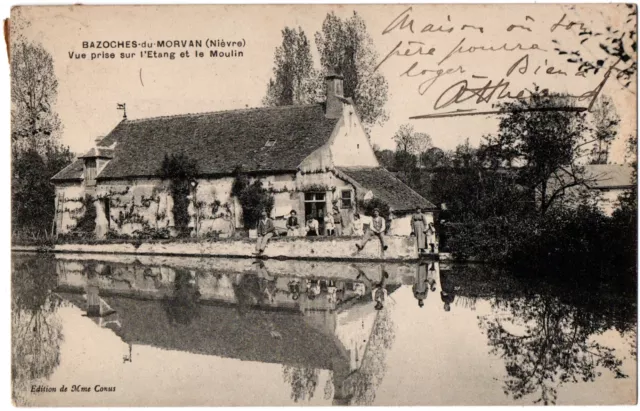 BAZOCHES-du-MORVAN (Nièvre)
Vue prise sur l'Etang et le Moulin
Maison où ton
père pourra
loger Bien
Edition de Mme Conus